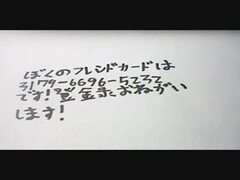 ぼくのフレンドカードは
3179-6696-5232
です!登金录おねがい
します!